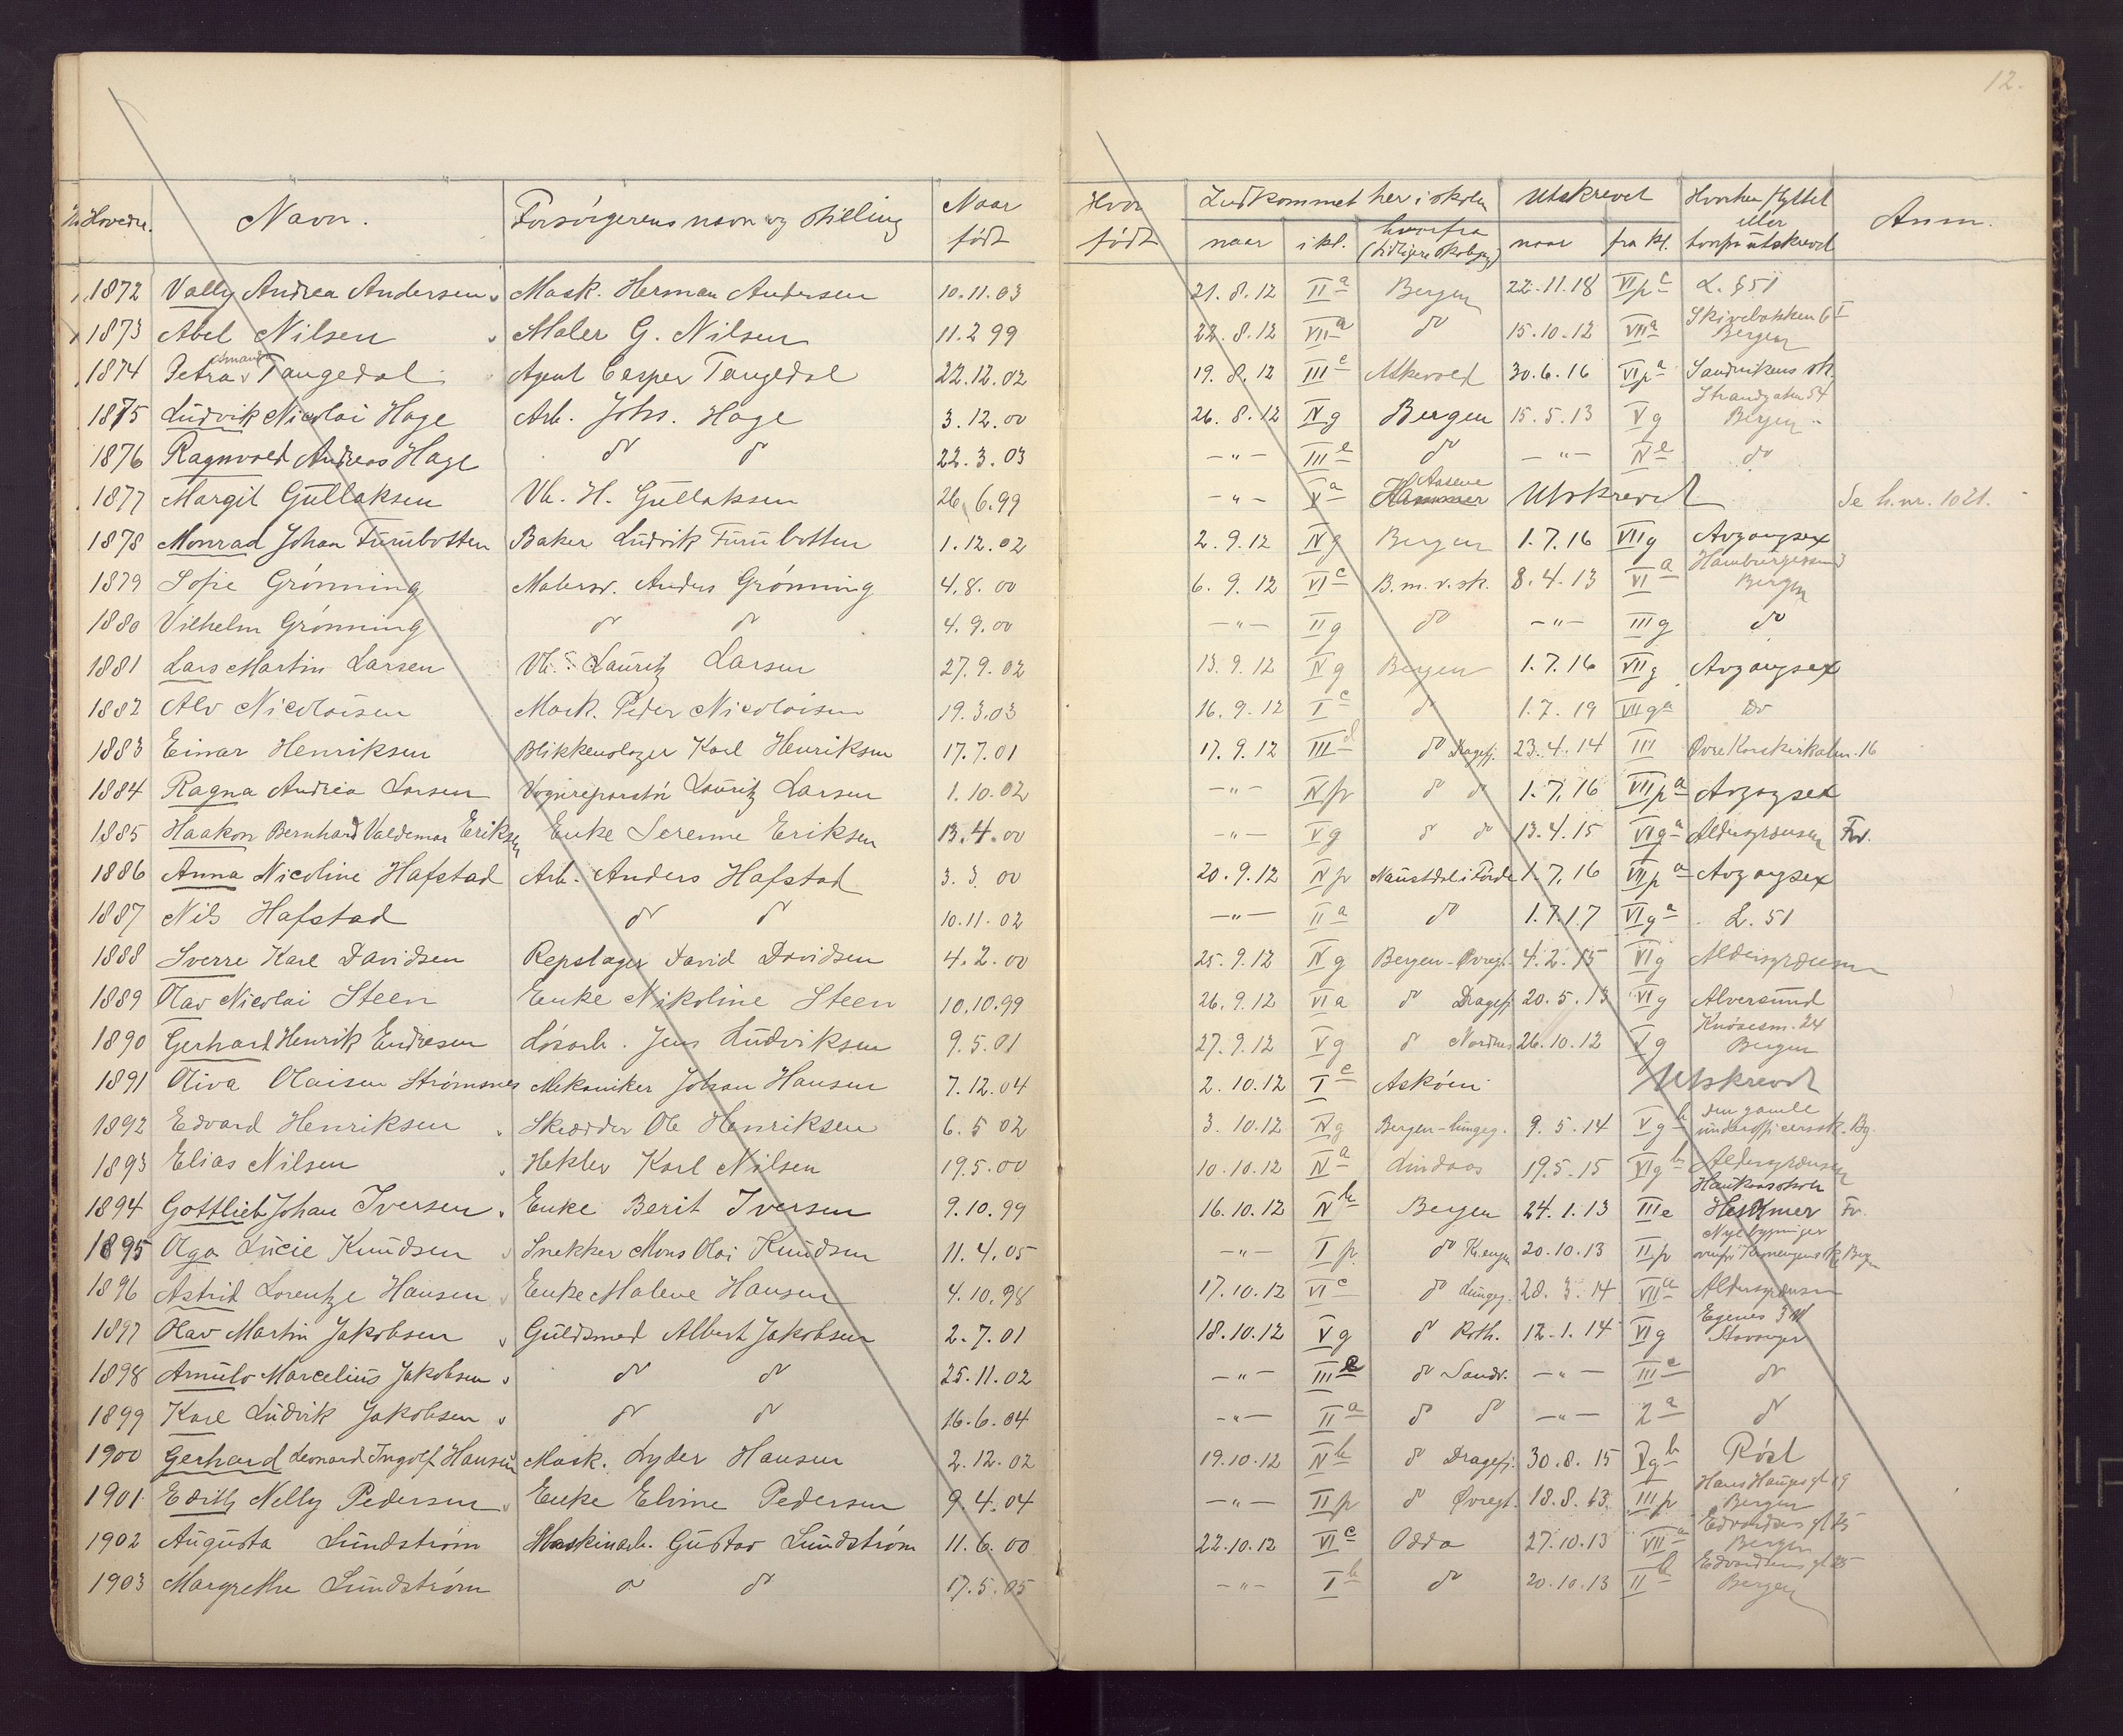 12.
Hovednr. Navn. Forsörgerens navn og stilling Naar födt Hvor födt Indkommet her i skolen naar i kl. hvorfra (tidligere skolegang) Utskrevet naar fra kl. Hvorhen flyttet eller hvorfor utskrevet Anm.
1872 Vally Andrea Andersen Mask. Herman Andersen 10.11.03 21.8.12 IIa Bergen 22.11.18 VIpc L. § 51
1873 Abel Nilsen Maler G. Nilsen 11.2 99 22.8.12 VIIa do 15.10.12 VIIa Skivebakken 6 I Bergen
1874 Petra Amanda Tangedal Agent Casper Tangedal 22.12.02 19.8.12 IIIc Askevold 30.6.16 VIpa Sandvikens sk.
1875 Ludvik Nicolai Hage Arb. Johs. Hage 3.12.00 26.8.12 IVg Bergen 15.5.13 Vg Strandgaten 54 Bergen
1876 Ragnvald Andreas Hage do do 22.3.03 -"- IIIe do -"- IVe do
1877 Margit Gullaksen Vb. H. Gullaksen 26.6.99 -"- Va Hammer Aasene Utskrevet Se h.nr. 1021.
1878 Monrad Johan Furubotten Baker Ludvik Furubotten 1.12.02 2.9.12 IVg Bergen 1.7.16 VIIg Avgangsex
1879 Sofie Grönning Malersv. Anders Grönning 4.8.00 6.9.12 VIc B.m.v.sk. 8.4.13 VIa Bergen
1880 Vilhelm Grönning do do 4.9.00 -"- IIg do -"- IIIg do
1881 Lars Martin Larsen Vb. Lauritz Larsen 27.9.02 13.9.12 IVg Bergen 1.7.16 VIIg Avgangsex
1882 Alv Nicolaisen Mask. Peder Nicolaisen 19.3.03 16.9.12 Ic do 1.7.19 VIIga Do
1883 Einar Henriksen Blikkenslager Karl Henriksen 17.7.01 17.9.12 IIId do Dragefj. 23.4.14 III Øvre Korskirkealm. 16
1884 Ragna Andrea Larsen Vognreparatör Lauritz Larsen 1.10.02 -"- IVp do do 1.7.16 VIIpa Avgangsex
1885 Haakon Bernhard Valdemar Eriksen Enke Serenne Eriksen 13.4.00 -"- Vg do do 13.4.15 VIga Aldersgrænsen
1886 Anna Nicoline Hafstad Arb. Anders Hafstad 3.3 00 20.9.12 IVp Naustdal i Förde 1.7.16 VIIpa Avgangsex
1887 Nils Hafstad do do 10.11.02 -"- IIa do 1.7.17 VIga L. 51
1888 Sverre Karl Davidsen Repslager David Davidsen 4.2.00 25.9.12 IVg Bergen-Øvregt. 4.2.15 VIg Aldersgrænsen
1889 Olav Nicolai Steen Enke Nikoline Steen 10.10.99 26.9.12 VIa do Dragefj. 20.5.13 VIg Alversund
1890 Gerhard Henrik Endresen Lösarb. Jens Ludviksen 9.5.01 27.9.12 Vg do Nordnes 26.10.12 Vg Knösesm. 24 Bergen
1891 Oliva Olaisen Strömsnes Mekaniker Johan Hansen 7.12.04 2.10.12 Ie Asköen Utskrevet
1892 Edvard Henriksen Skrædder Ole Henriksen 6.5 02 3.10.12 IVg Bergen-lungeg. 9.5.14 Vgb den gamle underofficerssk. Bg.
1893 Elias Nilsen Hekler Karl Nilsen 19.5.00 10.10.12 IVa Lindaas 19.5.15 VIgb Aldersgrænsen
1894 Gottlieb Johan Iversen Enke Berit Iversen 9.10.99 16.10.12 IVb Bergen 24.1.13 IIIe Haukaasskole Hammer Fv.
1895 Olga Lucie Knudsen Snekker Mons Olai Knudsen 11.4.05 -"- Ip do 20.10.13 IIp
1896 Astrid Lorentze Hansen Enke Malene Hansen 4.10.98 17.10.12 VIc do Lungeg. 28.3.14 VIIa Aldersgrænsen
1897 Olav Martin Jakobsen Guldsmed Albert Jakobsen 2.7.01 18.10.12 Vg do Roth. 12.1.14 VIg Egenes Stavanger
1898 Arnulv Marcelius Jakobsen do do 25.11.02 -"- IIIe do Sandv. -"- IIIe do
1899 Karl Ludvik Jakobsen do do 16.6.04 -"- IIa do do -"- 2a do
1900 Gerhard Leonard Ingolf Hansen Mask. Lyder Hansen 2.12.02 19.10.12 IVb do Dragefj. 30.8.15 Vgb Röst
1901 Edith Nelly Pedersen Enke Elvine Pedersen 9.4.04 -"- IIp do Øvregt. 18.8.13 IIIp Hans Hauges gt 19 Bergen
1902 Augusta Lundström Maskinarb. Gustav Lundström 11.6.00 22.10.12 VIc Odda 27.10.13 VIIa Edvardsens gt 25 Bergen
1903 Margrethe Lundström do do 17.5.05 -"- Ib do 20.10.13 IIb Edvardsens gt 25 Bergen